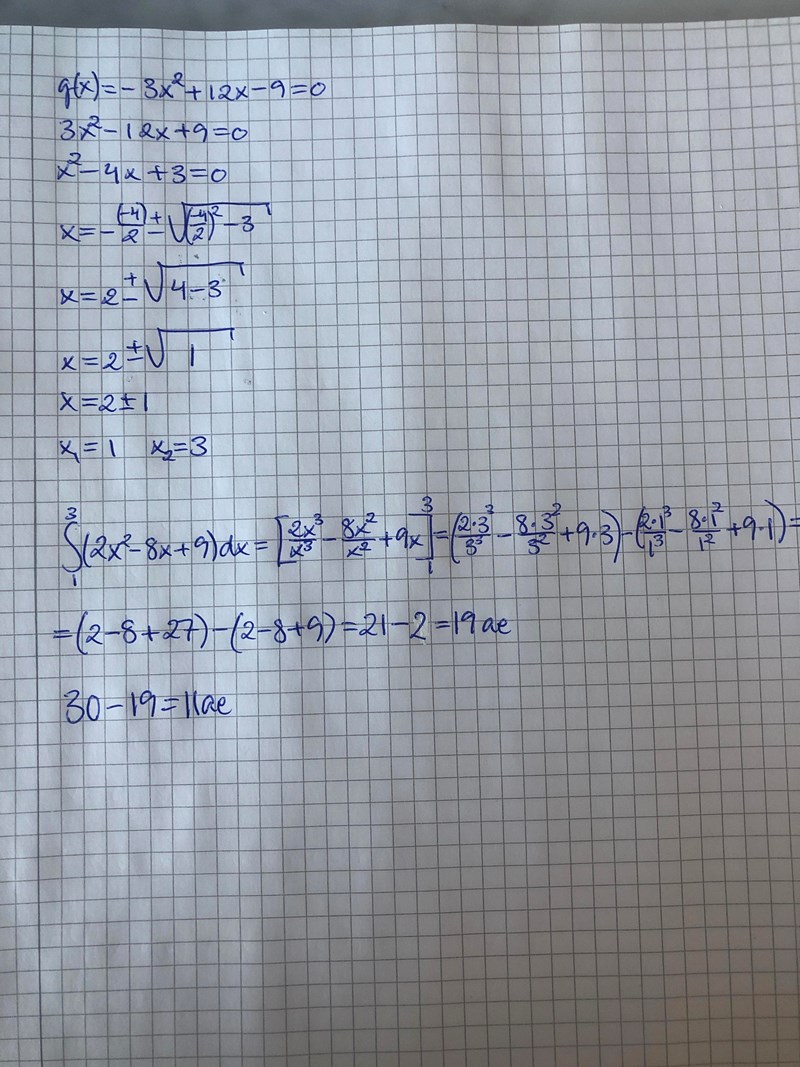 g(x)=-3x²+12x-9=0
3x²-12x+9=0
x²-4x+3=0
x=-(-4)/2±√((-4/2)²-3)
x=2±√(4-3)
x=2±√1
x=2±1
x₁=1 x₂=3
∫₁³(2x²-8x+9)dx=[2x³/x³-8x²/x²+9x]₁³=(2·3³/3³-8·3²/3²+9·3)-(2·1³/1³-8·1²/1²+9·1)=
=(2-8+27)-(2-8+9)=21-2=19ae
30-19=11ae